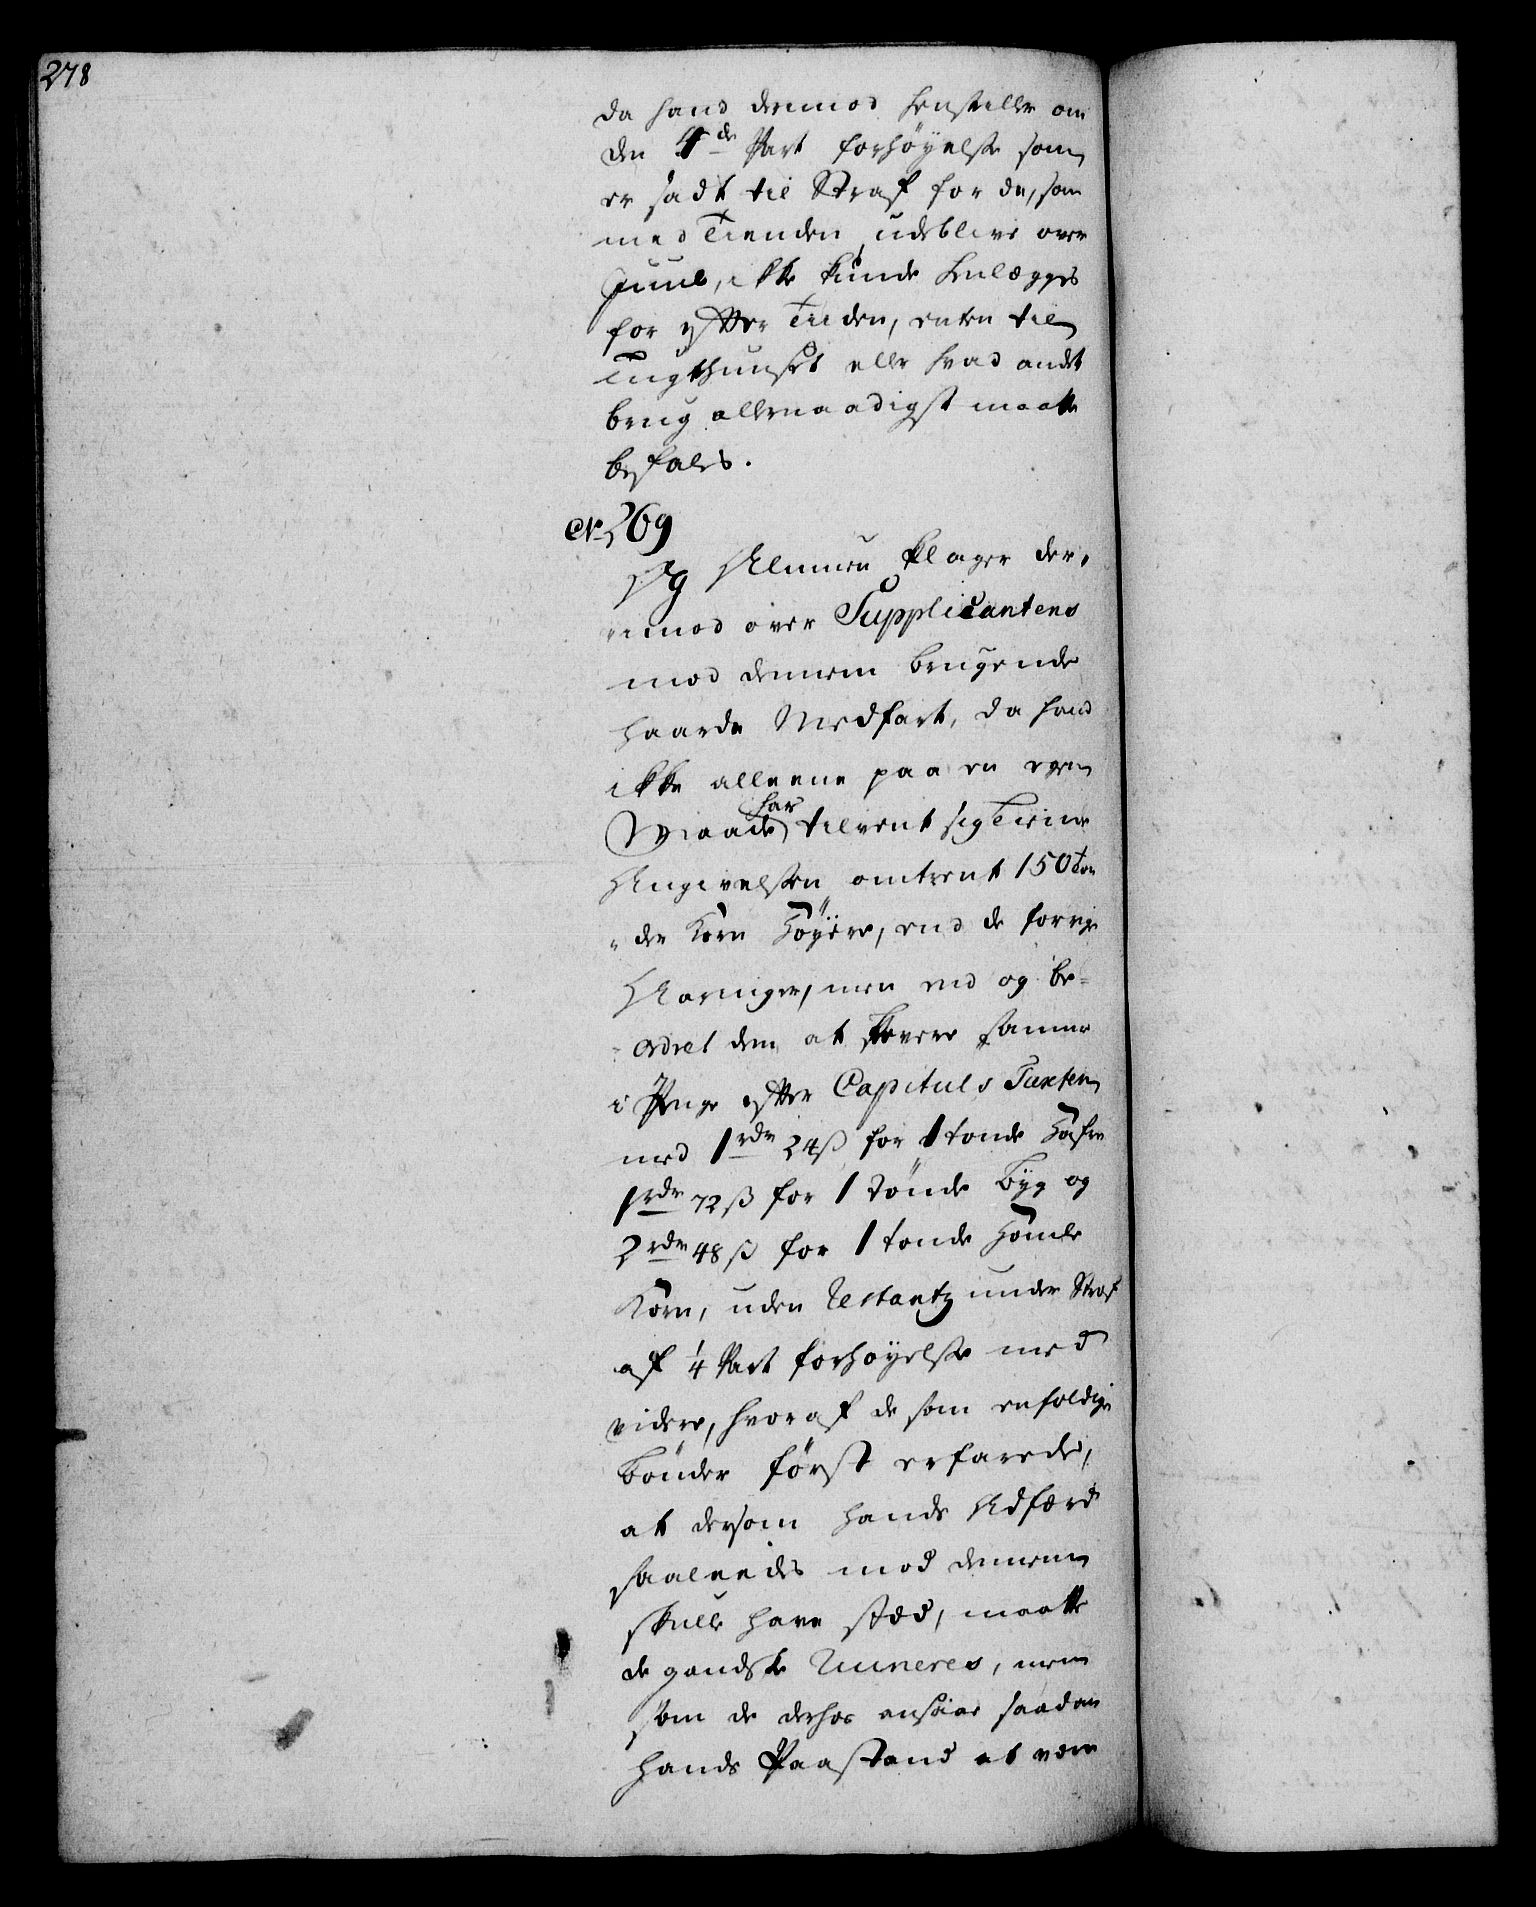 278
da hand derimod henstiller om
den 4de Part forhøyelse som
er sadt til Straf for de, som
med Tienden udeblive over
Juul, ikke kunde henlægges
for efter Tiiden, enten til
Tugthuuset eller hvad andet
brug allernaadigst maatte
befales.
No 269
Almuen klager der,
imod over Supplicantens
mod dennem brugende
haarde Medfart, da hand
ikke alleene paa en egen
Maade har tilvent sig Tiende
Angivelsen omtrent 150 tøn
"der Korn høyere, end de forrige
Aaringer, men end og be-
ordret dem at levere samme
i Penge efter Capituls Taxten
med 1 rdr 24 ß for 1 tønde Hafre
1 rdr 72 ß for 1 Tønde Byg og
2 rdr 48 ß for 1 tønde Homle
Korn, uden Restantz under Straf
af 1/4 Part forhøyelse med
videre, hvoraf de som enfoldige
Bønder først erfarede,
at dersom hands Adfærd
saaleedes mod dennem
skulle have stæd, maatte
de gandske Ruineres, men
som de derhos ansaae saadan
hands Paastand at være